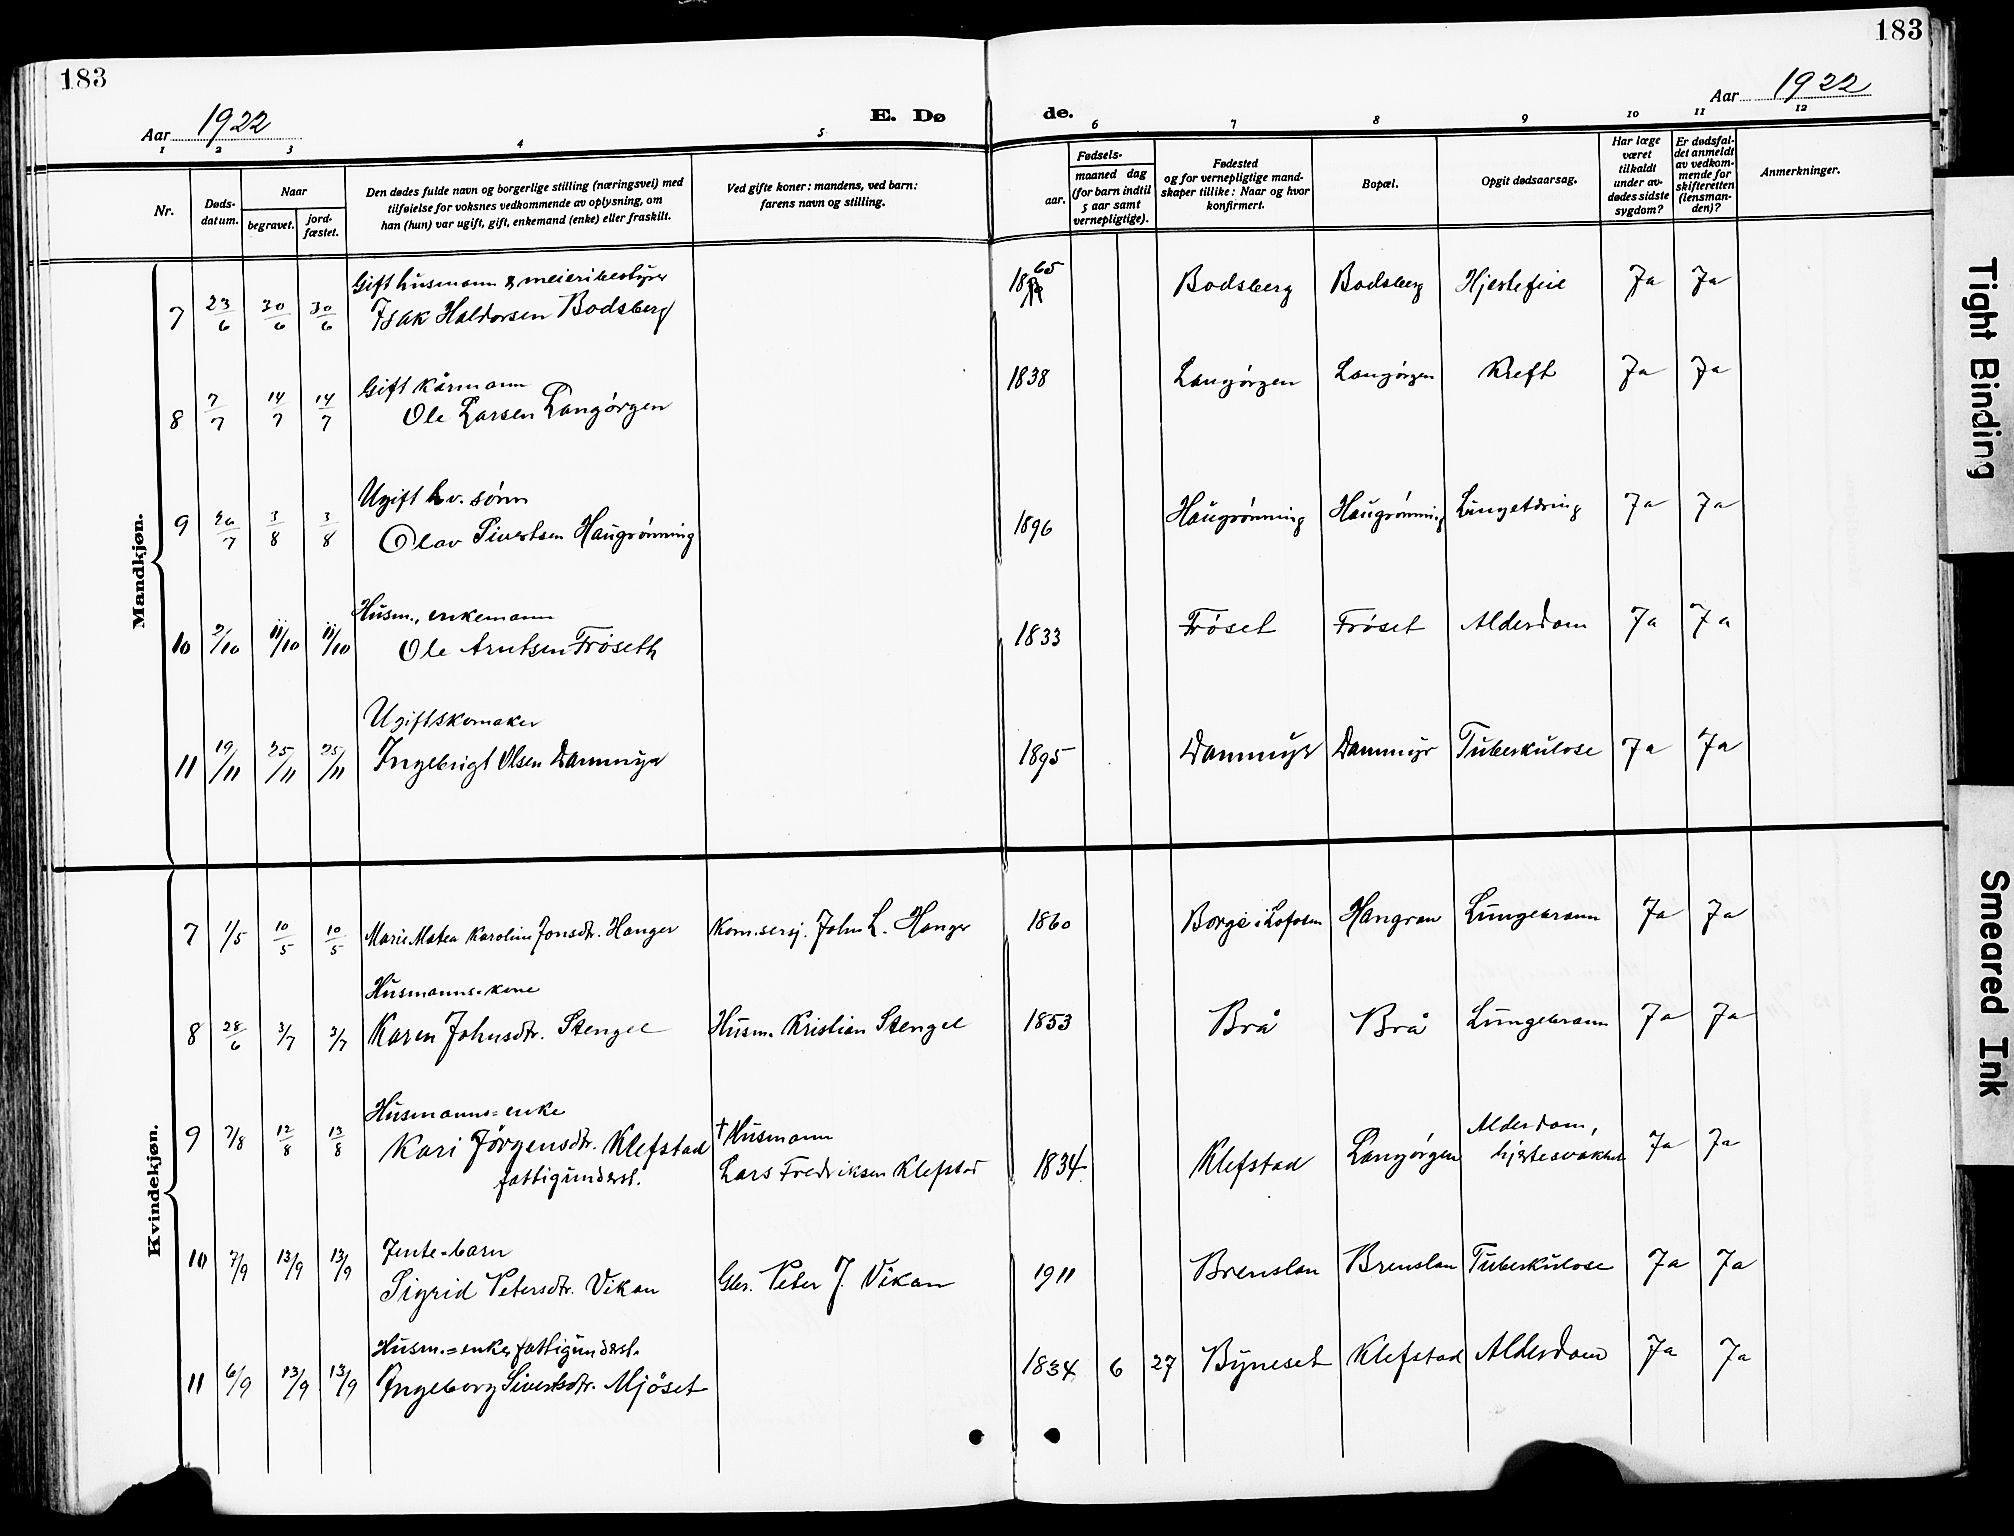 183
183
Aar 1922
E. Dø
de.
Aar 1922
1 2 3 4 5 6 7 8 9 10 11 12
Nr.
Døds-
datum.
Naar
begravet.
jord-
fæstet.
Den dødes fulde navn og borgerlige stilling (næringsvei) med
tilføielse for voksnes vedkommende av oplysning, om
han (hun) var ugift, gift, enkemand (enke) eller fraskilt.
Ved gifte koner: mandens, ved barn:
farens navn og stilling.
Fødsels-
aar.
maaned dag
(for barn indtil
5 aar samt
vernepligtige).
Fødested
og for vernepligtige mand-
skaper tillike: Naar og hvor
konfirmert.
Bopæl.
Opgit dødsaarsag.
Har læge
været
tilkaldt
under av-
dødes sidste
sygdom?
Er dødsfal-
det anmeldt
av vedkom-
mende for
skifteretten
(lensman-
den)?
Anmerkninger.
Mandkjøn.
Gift husmann & meieribestyrer
7 23/6 30/6 30/6 Isak Haldorsen Bodsberg 1865 Bodsberg Bodsberg Hjertefeil Ja Ja
Gift kårmann
8 7/7 14/7 14/7 Ole Larsen Langørgen 1838 Langørgen Langørgen Kreft Ja Ja
Ugift hv. sønn
9 26/7 3/8 3/8 Olav Sivertsen Haugrønning 1896 Haugrønning Haugrønning Lungetæring Ja Ja
Husm., enkemann
10 2/10 11/10 11/10 Ole Arntsen Frøseth 1833 Frøset Frøset Alderdom Ja Ja
Ugift skomaker
11 19/11 25/11 25/11 Ingebrigt Olsen Dammyr 1895 Dammyr Dammyr Tuberkulose Ja Ja
Kvindekjøn.
7 1/5 10/5 10/5 Marie Matea Karoline Jonsdtr. Hanger Kom.sersj. John L. Hanger 1860 Borge i Lofoten Hangran Lungebrann Ja Ja
Husmanns-kone
8 28/6 3/7 3/7 Karen Johnsdtr. Stengel Husm. Kristian Stengel 1853 Brå Brå Lungebrann Ja Ja
Husmanns=enke
9 7/8 12/8 13/8 Kari Jörgensdtr. Klefstad
fattigunderst.
† Husmann
Lars Fredriksen Klefstad
1834 Klefstad Langørgen Alderdom,
hjertesvakhet
Ja Ja
Jente=barn
10 7/9 13/9 13/9 Sigrid Petersdtr. Vikan Gbr. Peter J. Vikan 1911 Brenslan Brenslan Tuberkulose Ja Ja
Husm.=enke, fattigunderst.
11 6/9 13/9 13/9 Ingeborg Sivertsdtr. Mjöset 1834 6 27 Byneset Klefstad Alderdom Ja Ja
Tight Binding
Smeared Ink